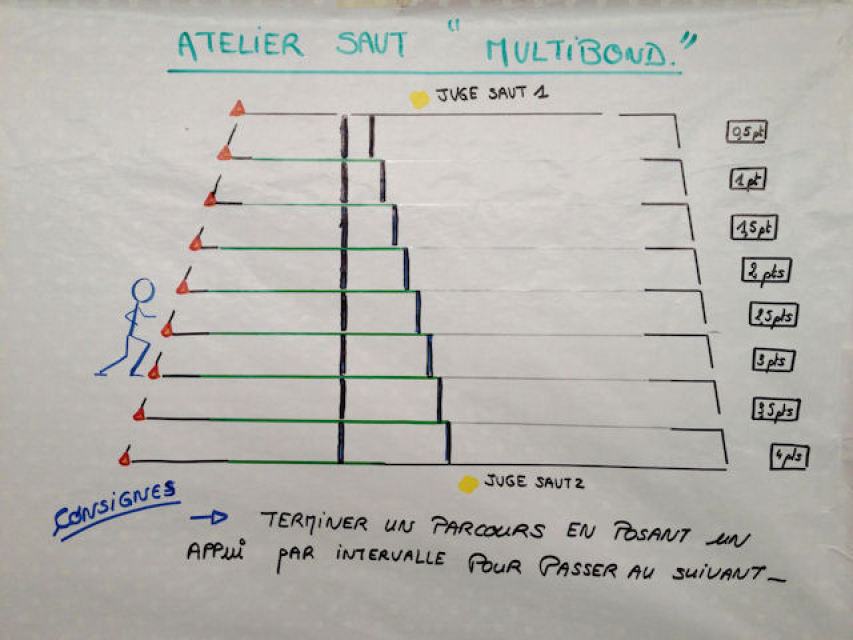 ATELIER SAUT "MULTIBOND."
JUGE SAUT 1
0,5pt
1pt
1,5pt
2 pts
2,5pts
3pts
3,5pts
4pts
JUGE SAUT 2
CONSIGNES
→ TERMINER UN PARCOURS EN POSANT UN
APPUI PAR INTERVALLE POUR PASSER AU SUIVANT_